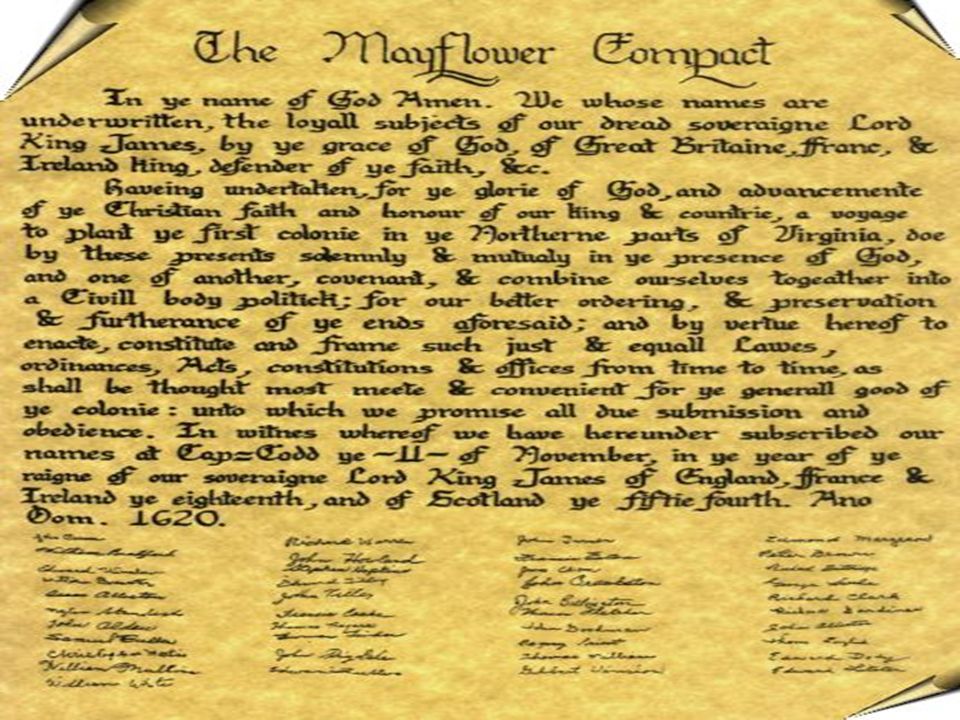 The Mayflower Compact
In ye name of God Amen. We whose names are
underwritten, the loyall subjects of our dread soveraigne Lord
King James, by ye grace of God, of Great Britaine, ffranc, &
Ireland king, defender of ye faith, &c.
Haveing undertaken, for ye glorie of God, and advancemente
of ye Christian faith and honour of our king & countrie, a voyage
to plant ye first colonie in ye Northerne parts of Virginia, doe
by these presents solemnly & mutualy in ye presence of God,
and one of another, covenant, & combine ourselves togeather into
a Civill body politick; for our better ordering, & preservation
& furtherance of ye ends aforesaid; and by vertue hereof to
enacte, constitute and frame such just & equall Lawes,
ordinances, Acts, constitutions & offices from time to time, as
shall be thought most meete & convenient for ye generall good of
ye colonie: unto which we promise all due submission and
obedience. In witnes whereof we have hereunder subscribed our
names at Cap=Codd ye ~11~ of November, in ye year of ye
raigne of our soveraigne Lord King James of England, ffrance &
Ireland ye eighteenth, and of Scotland ye fiftie fourth. Ano
Dom. 1620.
William Bradford
John Alden
Samuel Fuller
William Mullins
William White
Richard Warren
John Howland
Stephen Hopkins
Edward Tilley
John Tilley
Francis Cooke
Thomas Rogers
John Rigdale
Edward Fuller
John Turner
Francis Eaton
John Crackston
John Billington
John Goodman
Thomas Williams
Gilbert Winslow
Edmond Margeson
Peter Brown
Richard Clark
Richard Gardiner
John Allerton
Edward Doty